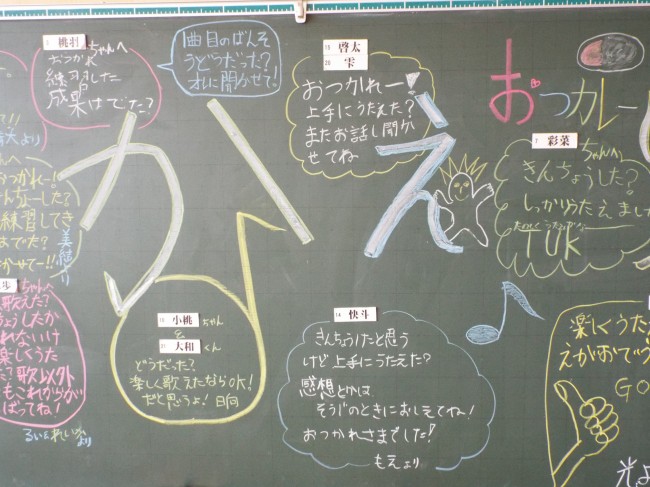 桃羽 ちゃんへ
おつかれ
練習した
成果はでた?
1曲目のばんそ
うどうだった?
オレに聞かせて!!
啓太
雫
おつかれー!
上手にうたえた?
またお話し聞か
せてね
おつカレー
彩菜 ちゃんへ
きんちょうした?
しっかりうたえました
TUK
かえ
より
おつかれー!
した?
練習してき
までた?
かせてー!!
ちゃんへ
歌えた?
楽しくうた
た?歌以外
もこれからがん
ばってね!
より
小桃 ちゃん
&
大和 くん
どうだった?
楽しく歌えたならOK!
だと思うよ! 日向
快斗
きんちょうしたと思う
けど上手にうたえた?
感想とかは
そうじのときにおしえてね!
おつかれさまでした!
もえより
楽しくうた
えがおでう
GO
光よ